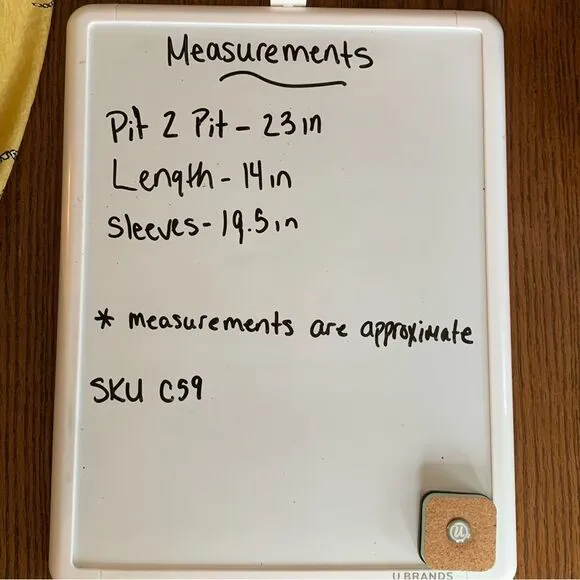 Measurements
Pit 2 Pit - 23in
Length - 14in
Sleeves - 19.5in
* measurements are approximate
SKU C59
U
U BRANDS